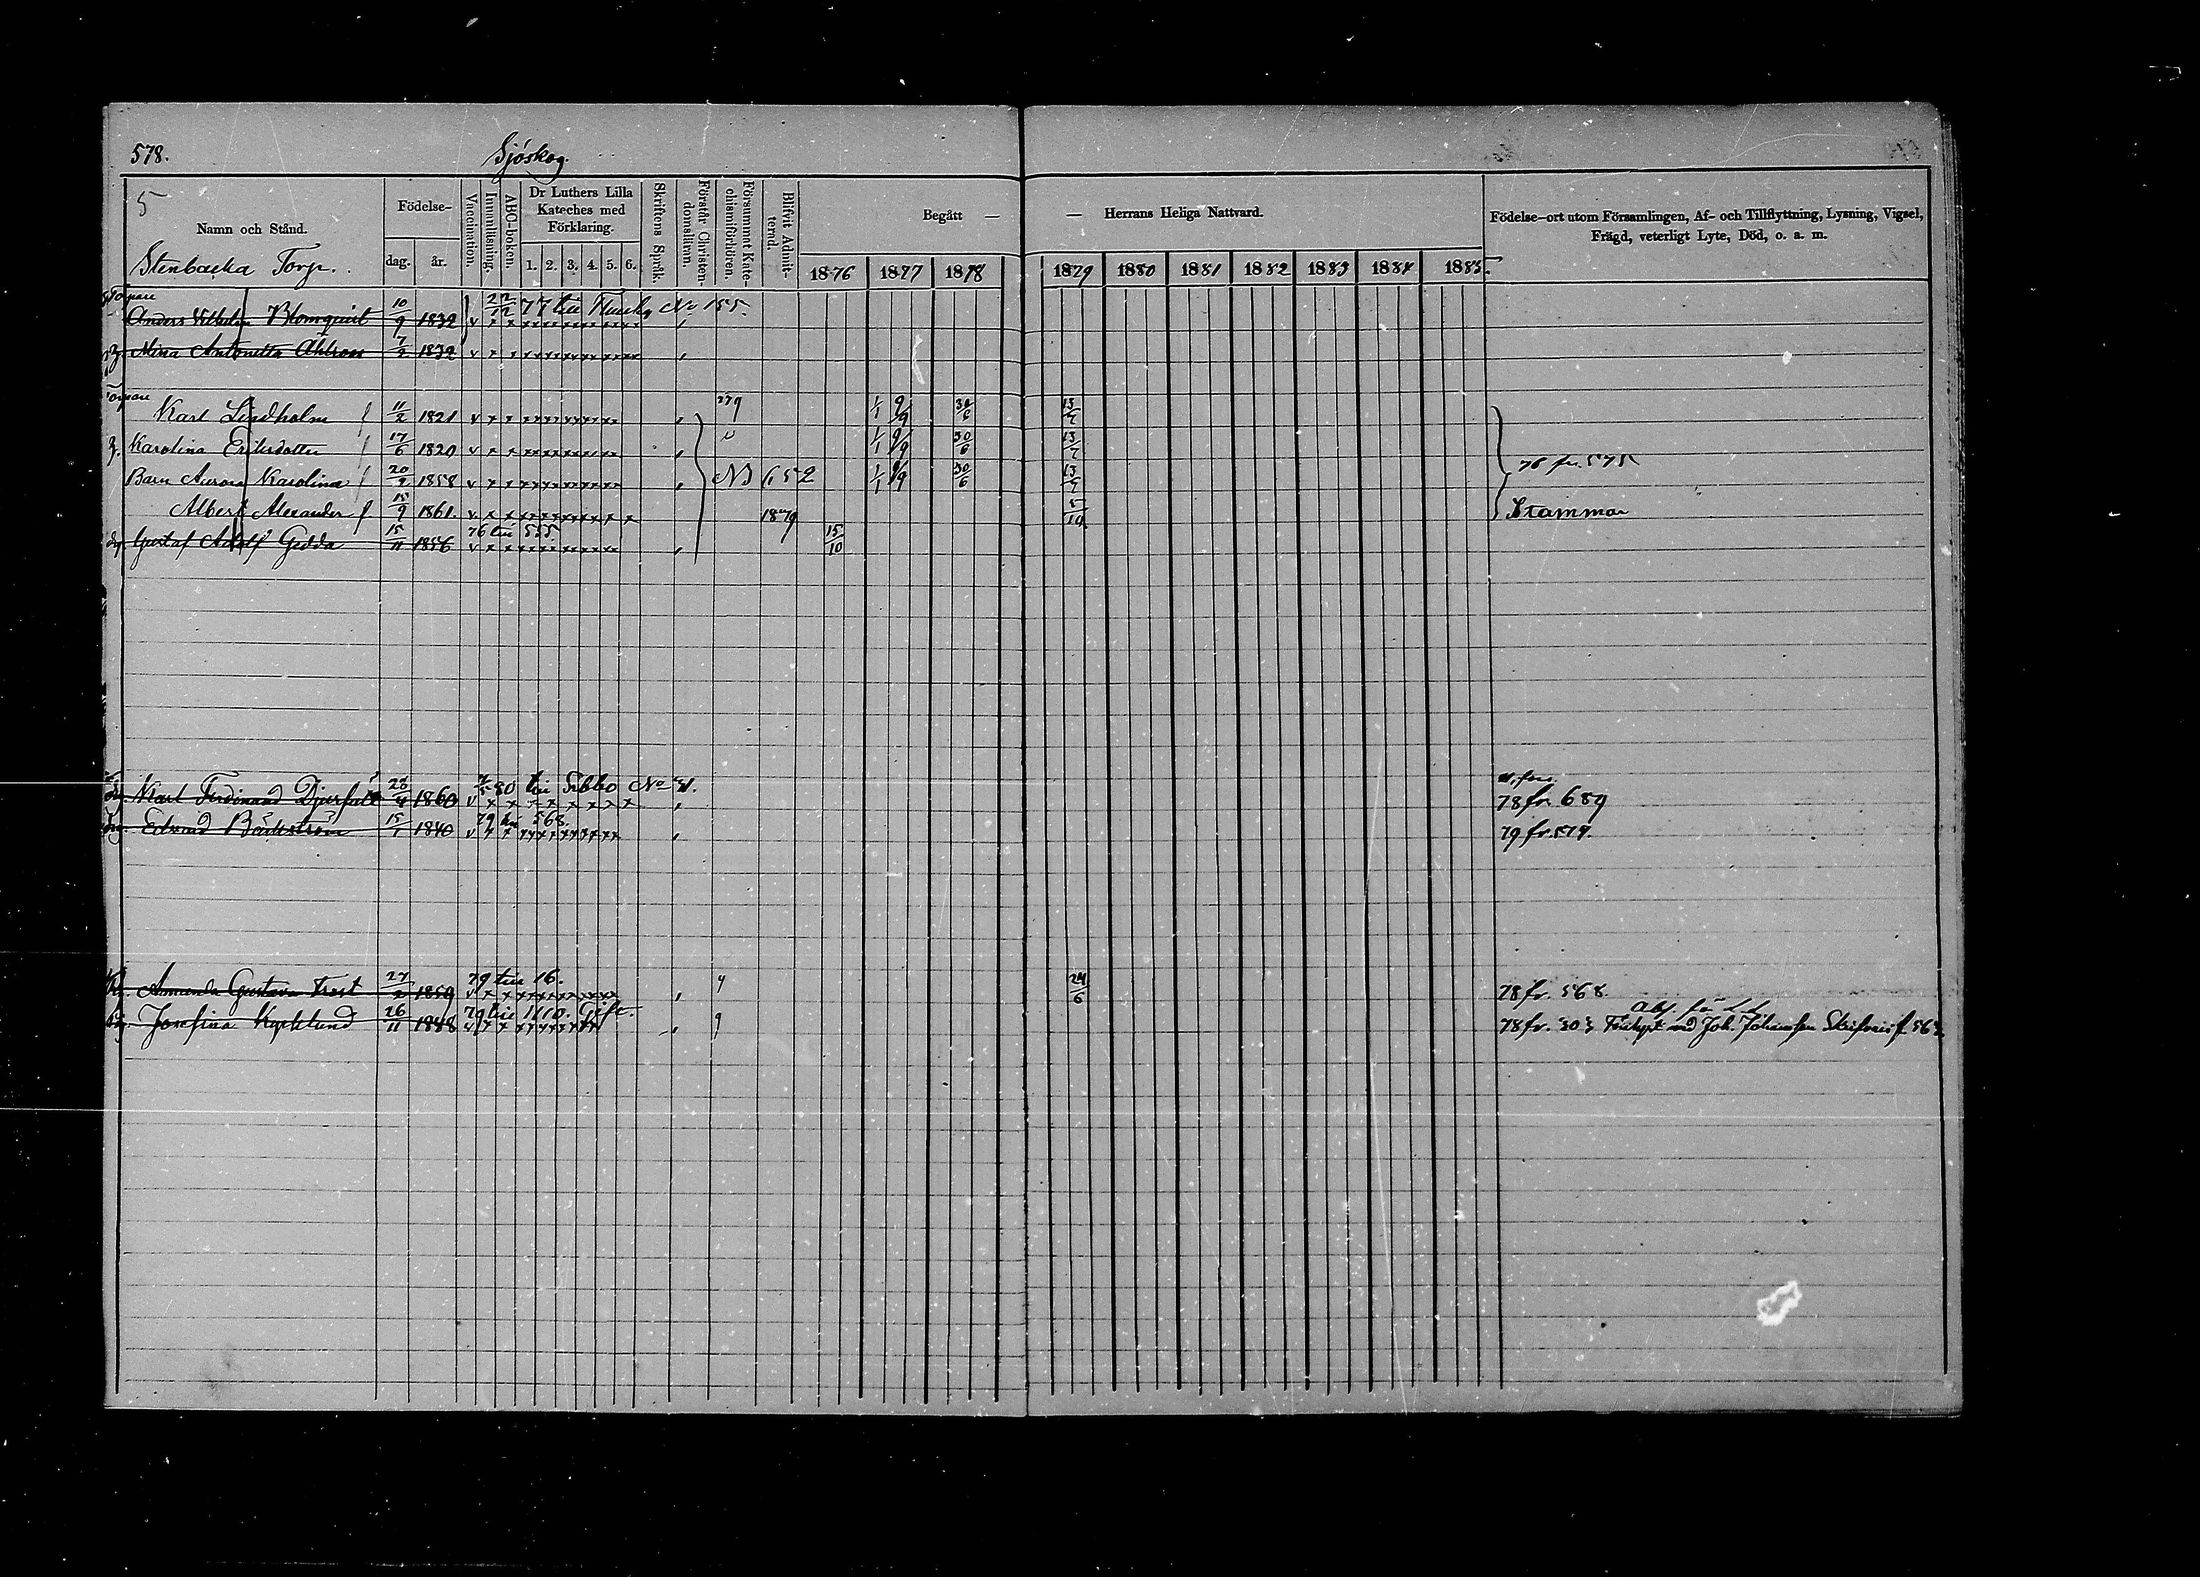 578. Sjöskog.
5
Namn och Stånd.
Födelse-
dag. år.
Vaccination.
Innanläsning.
ABC-boken.
Dr Luthers Lilla
Kateches med
Förklaring.
1. 2. 3. 4. 5. 6.
Skriftens Språk.
Förstår Christen-
domslären.
Försummat Kate-
chismiförhören.
Blifvit Admit-
terad.
Begått —
— Herrans Heliga Nattvard.
1876 1877 1878 1879 1880 1881 1882 1883 1884 1885
Födelse-ort utom Församlingen, Af- och Tillflyttning, Lysning, Vigsel,
Frägd, veterligt Lyte, Död, o. a. m.
Stenbacka Torp.
Torpare 22/12 77 till No 155.
Anders Vilhelm Blomquist 10/9 1832 v x x
Mina Antonetta Ahlroos 7/2 1832 v x x
Torpare
Karl Lindholm 11/2 1821 v x x 1/1 9/9 30/6 13/7
Karolina Eriksdotter 17/6 1820 v x x 1/1 9/9 30/6 13/7
Barn Aurora Karolina 20/9 1858 v x x NB 652 1/1 9/9 30/6 13/7 76 fr. 575
Albert Alexander 15/9 1861 v x x 1879 5/10 Stammar
76 till 555
Gustaf Adolf Gedda 15/11 1856 v x x 15/10
80 till Sibbo No
Karl Ferdinand 1860 v x x 78 fr. 689
79 till 568.
Edvard Bäckström 15/1 1840 v x x 79 fr. 579.
79 till 16.
Amanda Gustava Trast 27/2 1859 v x x 24/6 78 fr. 568.
79 till 1110. Gift.
Josefina Kycklund 26/11 1848 v x x 78 fr. 303 med Joh. Johansson